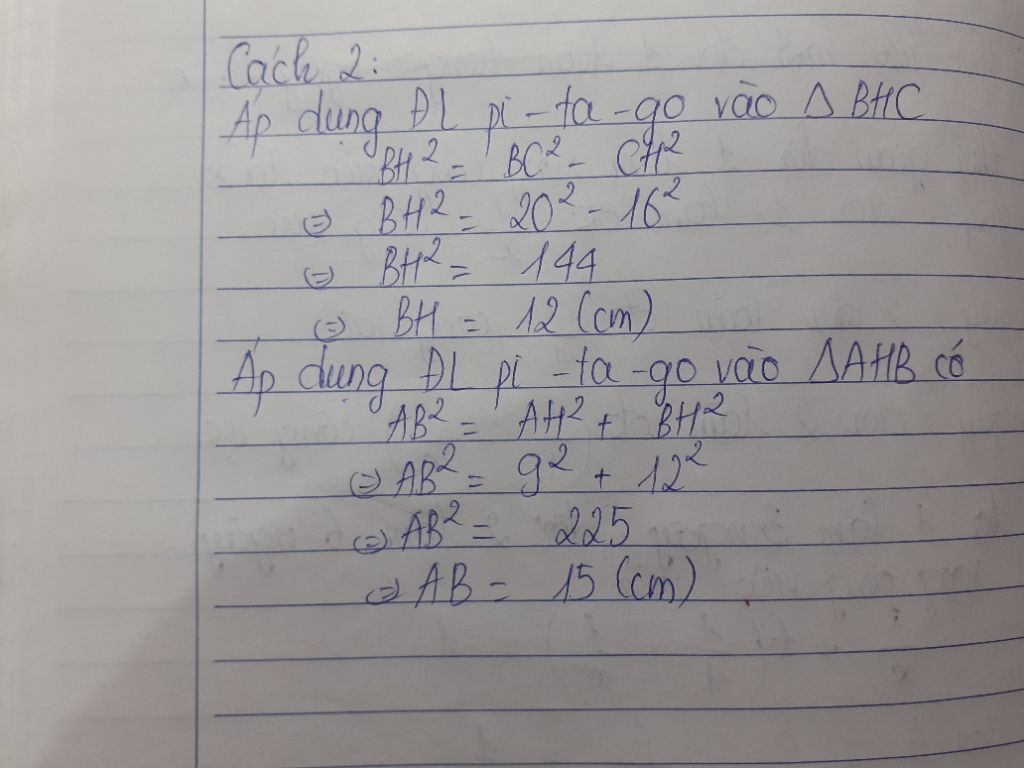 Cách 2:
Áp dụng ĐL pi-ta-go vào Δ BHC
BH² = BC² - CH²
⇔ BH² = 20² - 16²
⇔ BH² = 144
⇔ BH = 12 (cm)
Áp dụng ĐL pi-ta-go vào ΔAHB có
AB² = AH² + BH²
⇔ AB² = 9² + 12²
⇔ AB² = 225
⇔ AB = 15 (cm)